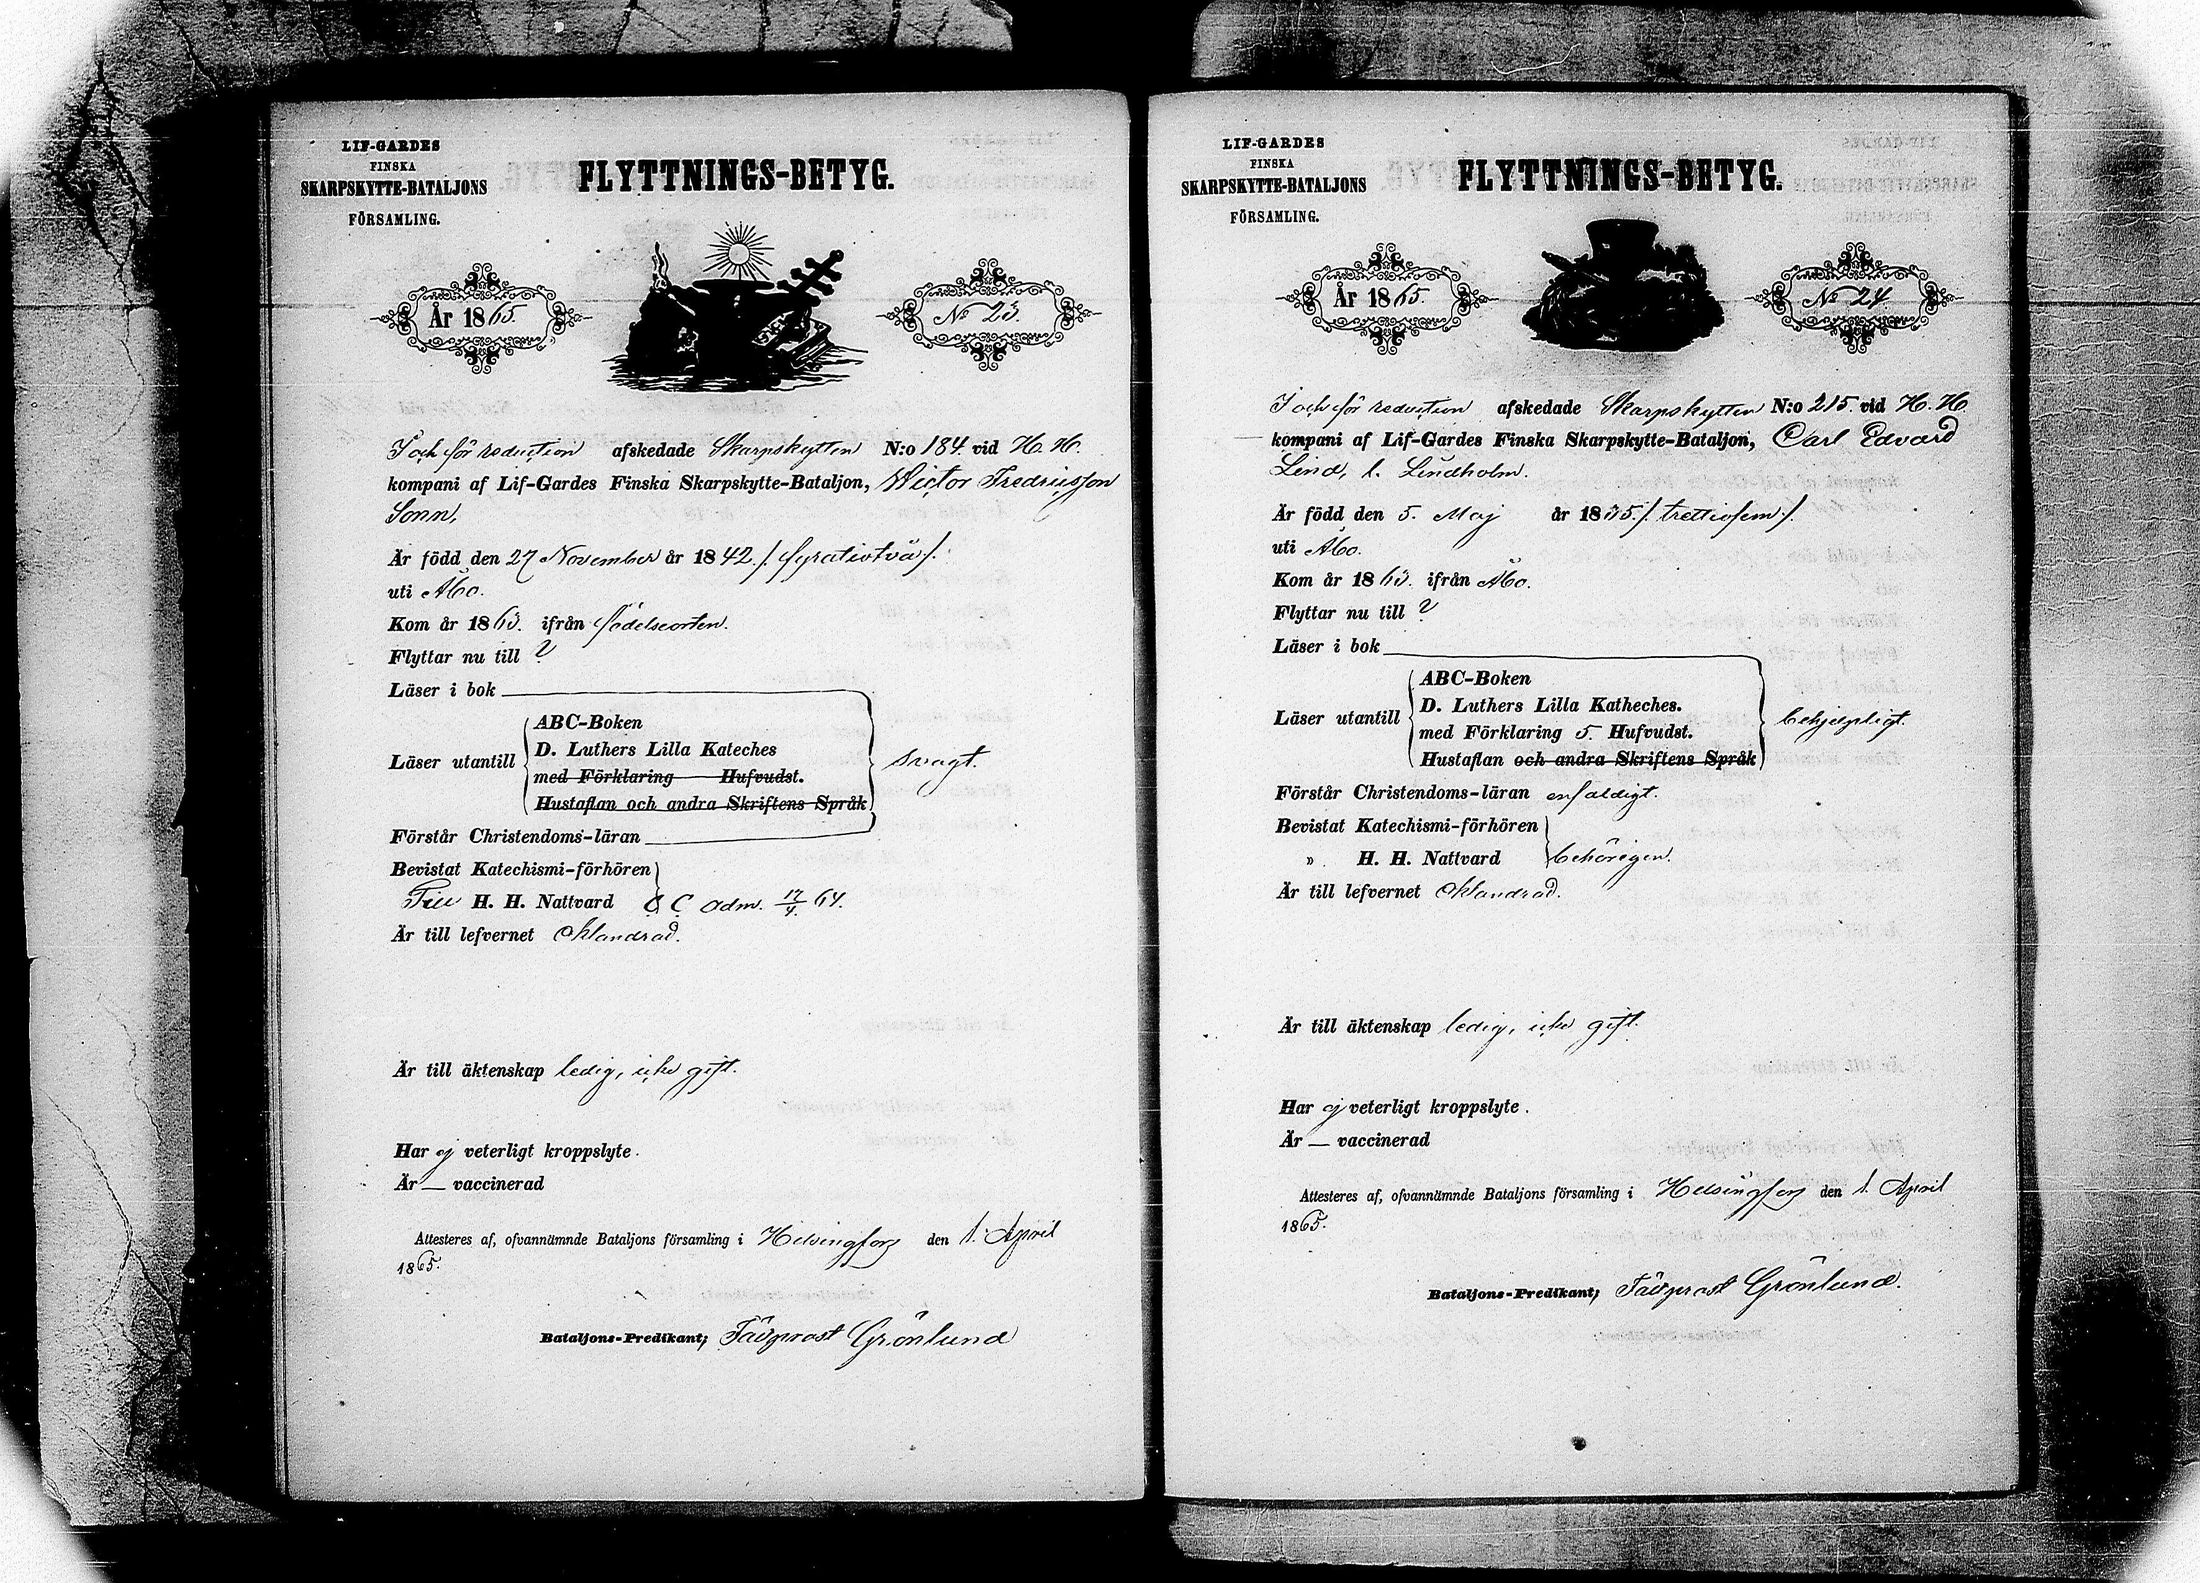 LIF-GARDES
FINSKA
SKARPSKYTTE-BATALJONS
FÖRSAMLING.
FLYTTNINGS-BETYG.
År 1865.
No 23.
I och för reduction afskedade Skarpskytten N:o 184. vid H. H.
kompani af Lif-Gardes Finska Skarpskytte-Bataljon, Wictor Fredriksson
Sonn,
Är född den 27 November år 1842. /: fyratiotvå :/.
uti Åbo.
Kom år 1863. ifrån födelseorten.
Flyttar nu till ?
Läser i bok
Läser utantill
ABC-Boken
D. Luthers Lilla Kateches
med Förklaring Hufvudst.
Hustaflan och andra Skriftens Språk
svagt.
Förstår Christendoms-läran
Bevistat Katechismi-förhören
Till H. H. Nattvard C C adm. 17/4. 64.
Är till lefvernet oklandrad.
Är till äktenskap ledig, icke gift.
Har ej veterligt kroppslyte.
Är — vaccinerad
Attesteres af, ofvannämnde Bataljons församling i Helsingfors den 1. April
1865.
Bataljons-Predikant; Fältprost Grönlund
LIF-GARDES
FINSKA
SKARPSKYTTE-BATALJONS
FÖRSAMLING.
FLYTTNINGS-BETYG.
År 1865.
No 24
I och för reduction afskedade Skarpskytten N:o 215. vid H. H.
kompani af Lif-Gardes Finska Skarpskytte-Bataljon, Carl Edvard
Lind, l. Lindholm.
Är född den 5. Maj år 1835. /: trettiofem :/.
uti Åbo.
Kom år 1863. ifrån Åbo.
Flyttar nu till ?
Läser i bok
Läser utantill
ABC-Boken
D. Luthers Lilla Katheches.
med Förklaring 5. Hufvudst.
Hustaflan och andra Skriftens Språk
behjelpligt.
Förstår Christendoms-läran enfaldigt.
Bevistat Katechismi-förhören
» H. H. Nattvard behörigen.
Är till lefvernet oklandrad.
Är till äktenskap ledig, icke gift.
Har ej veterligt kroppslyte.
Är — vaccinerad
Attesteres af, ofvannämnde Bataljons församling i Helsingfors den 1. April
1865.
Bataljons-Predikant; Fältprost Grönlund.